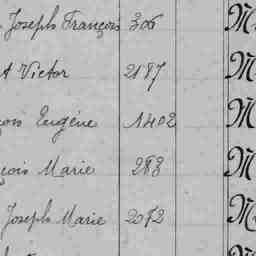 Joseph François 306 M
t Victor 2187 M
çois Eugène 1402 M
çois Marie 283 M
Joseph Marie 2072 M